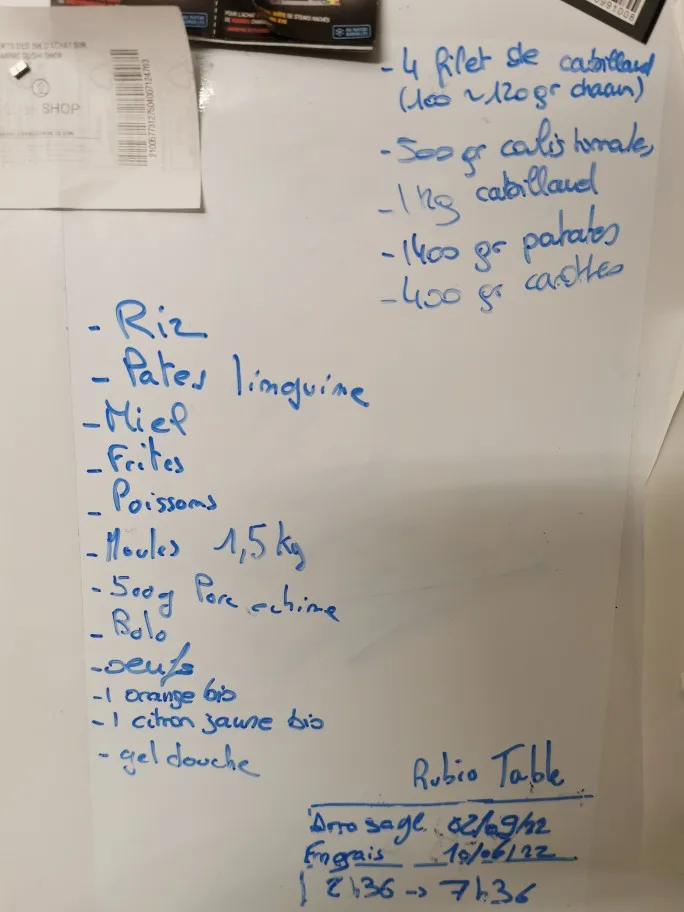 POUR L'ACHAT
DE STEAKS HACHÉS
SHOP
21005773127504007124763
991008
- 4 filet de cabillaud
(100 ~ 120 gr chacun)
- 500 gr
- 1 kg cabillaud
- 1400 gr patates
- 400 gr carottes
- Riz
- Pates linguine
- Miel
- Frites
- Poissons
- Moules 1,5 kg
- 500g Porc echine
- Bolo
- oeufs
- 1 orange bio
- 1 citron jaune bio
- gel douche
Rubio Table
Arrosage 02/09/22
Engrais 10/06/22
2h36 -> 7h36